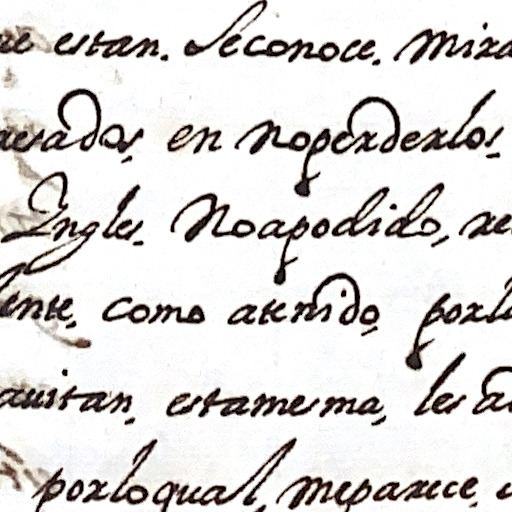 re estan. Seconoce. Mira
resados, en noperderlos.
Yngles. Noapodido, re
lente, como atenido, porl
auitan, estamesma, les a
porloqual, meparece,